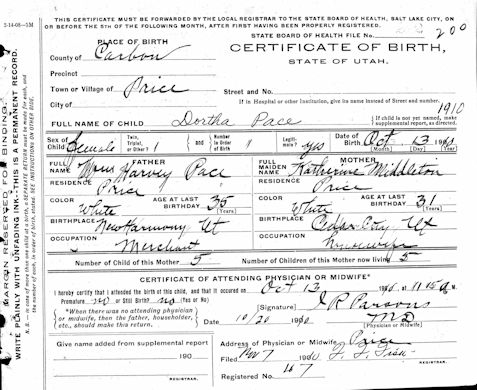 THIS CERTIFICATE MUST BE FORWARDED BY THE LOCAL REGISTRAR TO THE STATE BOARD OF HEALTH, SALT LAKE CITY, ON
OR BEFORE THE 5TH OF THE FOLLOWING MONTH, AFTER FIRST HAVING BEEN PROPERLY REGISTERED.
STATE BOARD OF HEALTH FILE No. 200
PLACE OF BIRTH
County of Carbon
CERTIFICATE OF BIRTH,
STATE OF UTAH.
Precinct
Town or Village of Price
No. Street
City of
If in Hospital or other Institution, give its name instead of Street and number.
1910
FULL NAME OF CHILD Dortha Pace
If child is not yet named, make supplemental report, as directed.
Sex of Child Female Twin, Triplet, or Other? 1 and Number in Order of Birth 1 Legitimate? yes Date of Birth Oct 13 1910
(Month) (Day) (Year)
FATHER
FULL NAME Wm Harvey Pace
MOTHER
FULL MAIDEN NAME Katherine Middleton
RESIDENCE Price
RESIDENCE Price
COLOR White AGE AT LAST BIRTHDAY 35 (Years)
COLOR White AGE AT LAST BIRTHDAY 31 (Years)
BIRTHPLACE New Harmony Ut
BIRTHPLACE Cedar City Ut
OCCUPATION Merchant
OCCUPATION Housewife
Number of Child of this Mother 5
Number of Children of this Mother now living 5
CERTIFICATE OF ATTENDING PHYSICIAN OR MIDWIFE*
I hereby certify that I attended the birth of this child, and that it occurred on Oct 13 1910, at 11 15 a M.
Premature no or Still Birth? no (Yes or No)
*When there was no attending physician or midwife, then the father, householder, etc., should make this return.
(Signature) J R Parsons
Date 10/20 1910 MD
(Physician or Midwife)
Give name added from supplemental report
190
REGISTRAR.
Address of Physician or Midwife Price
Filed Nov 7 1910
REGISTRAR.
Registered No. 167
2-14-08—5M
MARGIN RESERVED FOR BINDING.
WRITE PLAINLY WITH UNFADING INK—THIS IS A PERMANENT RECORD.